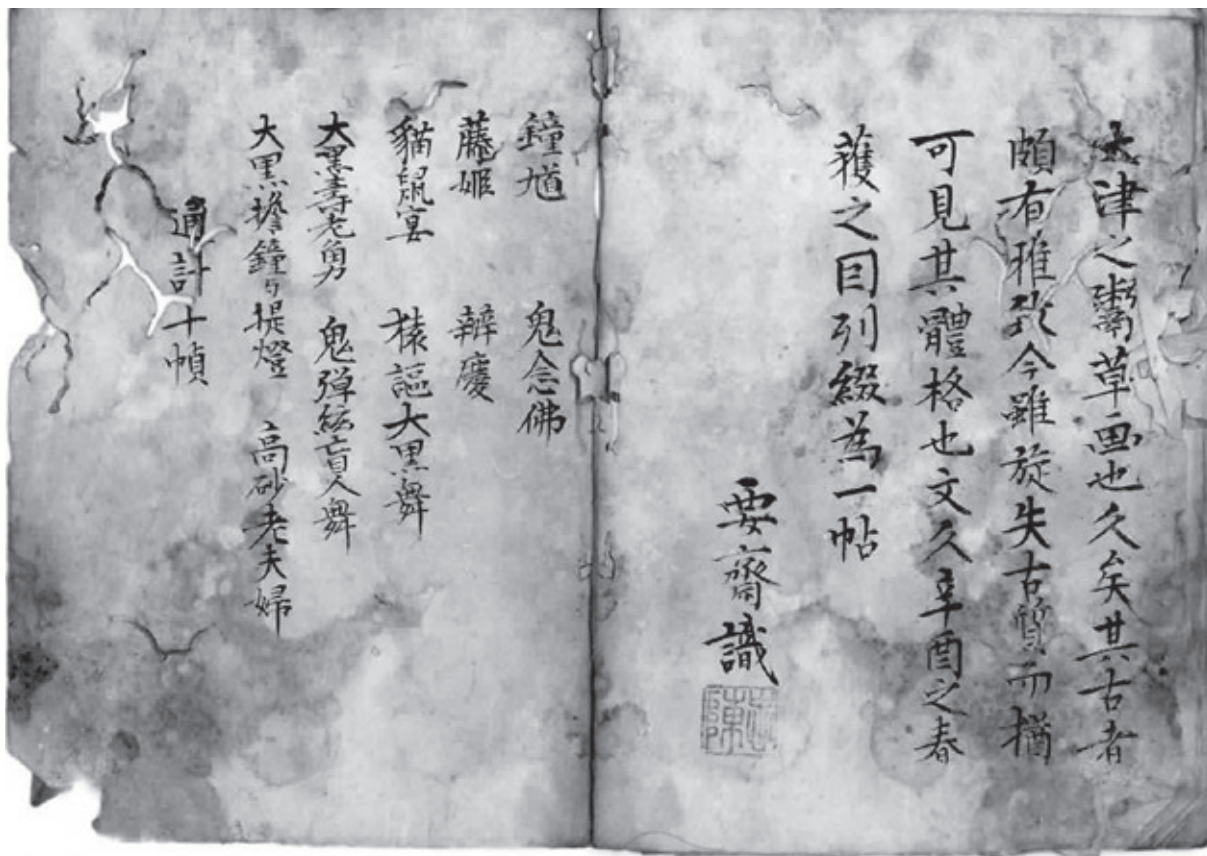 大津之鬻草画也久矣其古者
頗有雅致今雖旋失古質而猶
可見其體格也文久辛酉之春
獲之因列綴為一帖
要齋識
鐘馗 鬼念佛
藤姬 辨慶
貓鼠宴 猿謳大黒舞
大黒壽老
鬼弾絃盲人舞
大黒擔鐘 提燈 高砂老夫婦
通計十幀